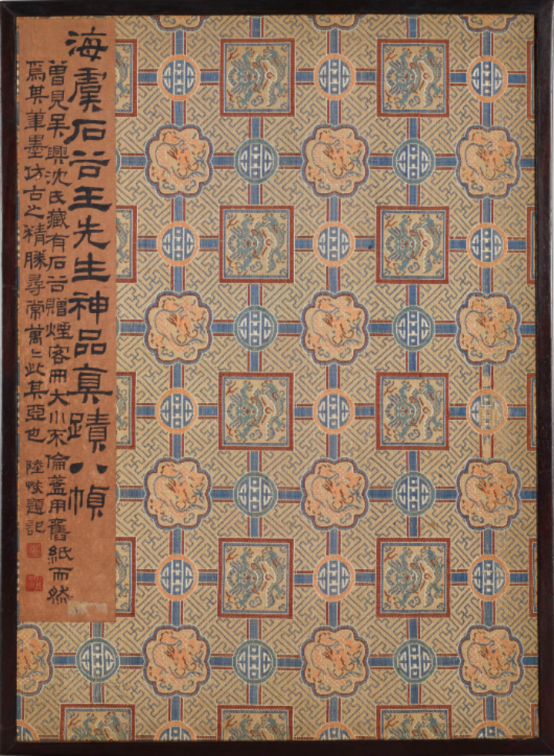 海虞石谷王先生神品真蹟八幀
曾見吳興沈氏藏有石谷贈煙客冊大小不倫蓋用舊紙而然
焉其筆墨仿古之精勝尋常萬〻此其亞也 陸恢題記